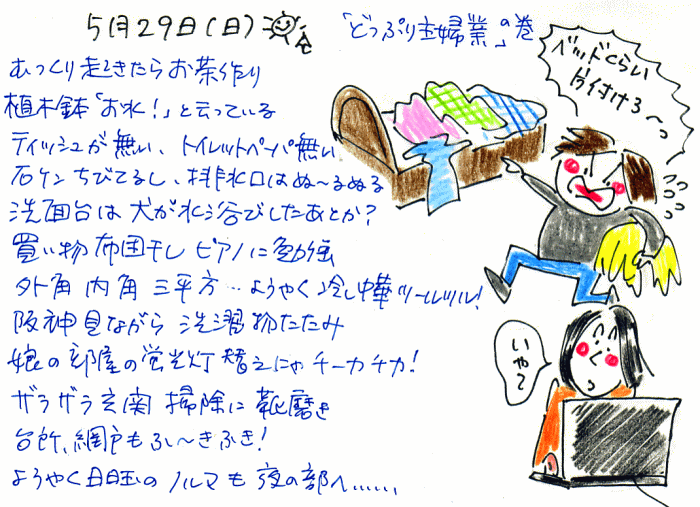 5月29日(日)
「どっぷり主婦業」の巻
むっくり起きたらお茶作り
植木鉢「お水!」と云っている
ティッシュが無い、トイレットペーパ無い
石ケンちびてるし、排水口はぬ〜るぬる
洗面台は犬が水浴びしたあとか?
買い物 布団干し ピアノに勉強
外角 内角 三平方…ようやく冷し中華ツールツル!
阪神見ながら 洗濯物たたみ
娘の部屋の蛍光灯 替えにゃチーカチカ!
ザラザラ玄関 掃除に靴磨き
台所、網戸もふ〜きふき!
ようやく日曜の ノルマも 夜の部へ……
ベッドくらい
片付けろ〜っ
いやで